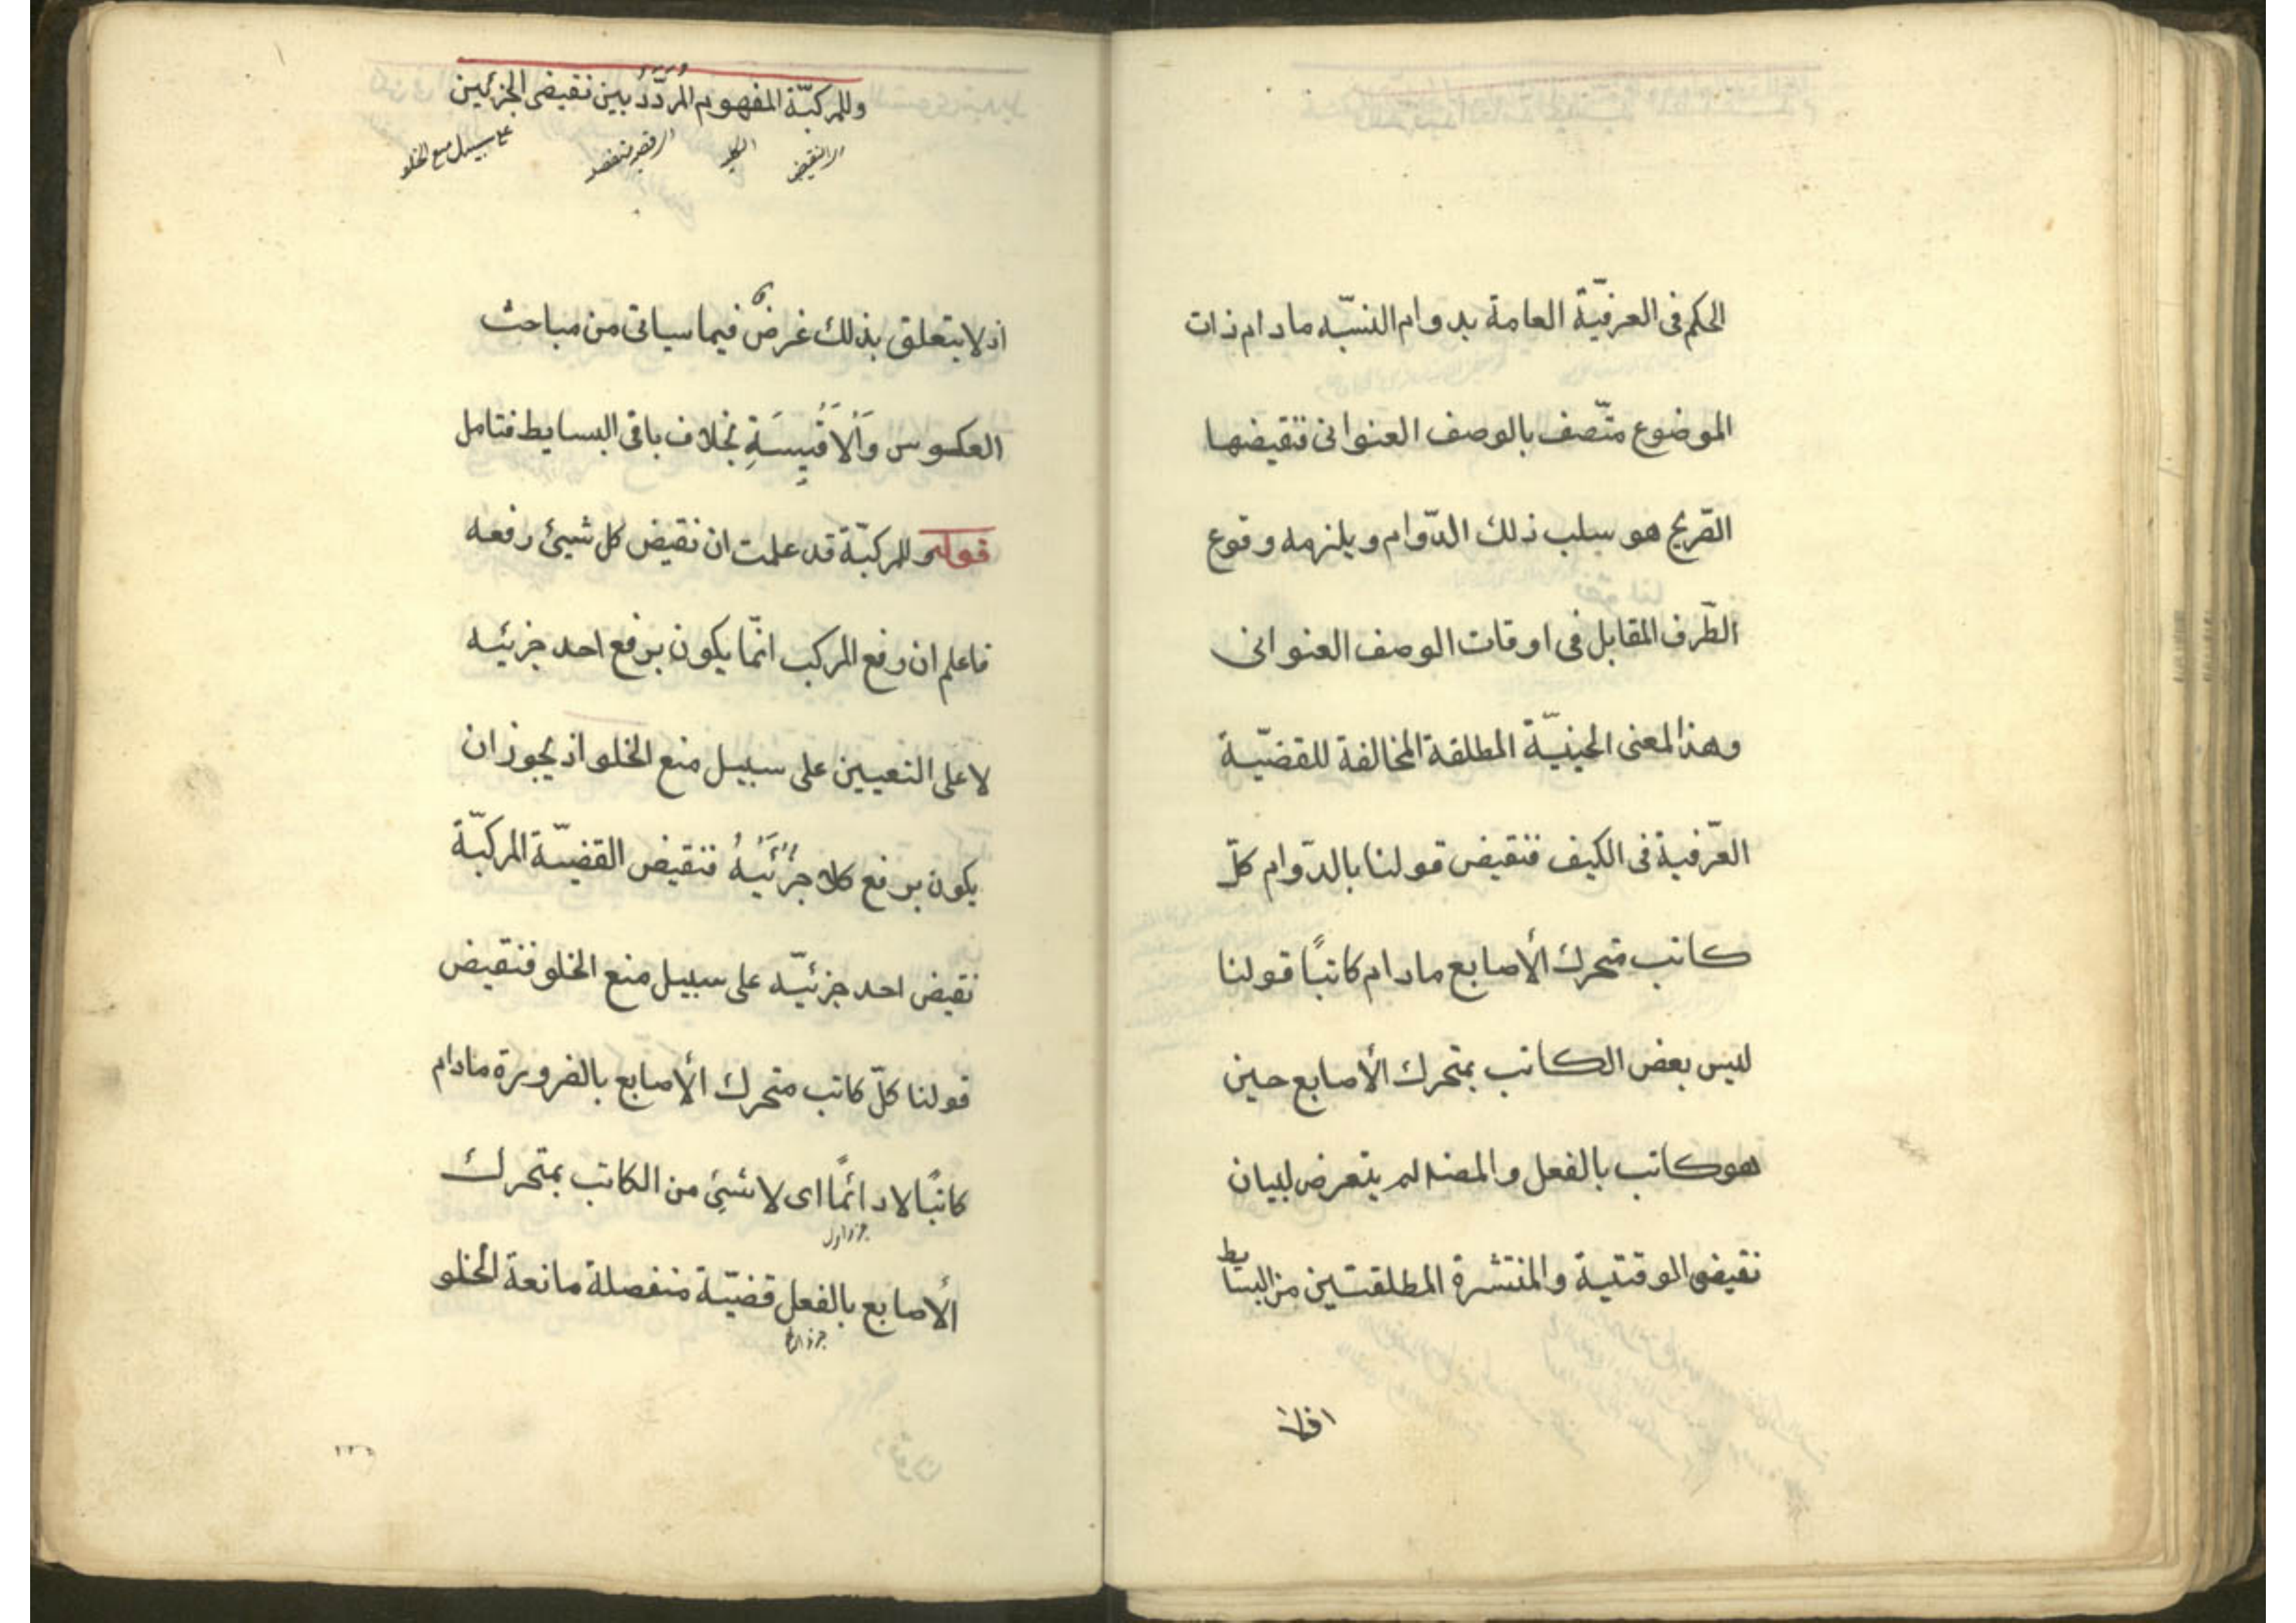 الحكم فى العرفيّة العامة بدوام النسبّه مادام ذات
الموضوع متّصف بالوصف العنوانى فنقيضها
الصّريح هو سلب ذلك الدّوام ويلزمه وقوع
الطّرف المقابل فى اوقات الوصف العنوانى
وهذا المعنى الحينيّة المطلقة المخالفة للقضيّة
العّرفية فى الكيف فنقيض قولنا بالدّوام كلّ
كاتب متحرك الأصابع مادام كاتبًا قولنا
ليس بعض الكاتب بمتحرك الأصابع حين
هو كاتب بالفعل والمصنه لم يتعرض لبيان
نقيضى الوقتية والمنتشرة المطلقتين من البسايط
اذلا
وللمركبّة المفهوم المردّد بين نقيضى الجزئين
اى النقيض
على سبيل منع الخلو
اذ لا يتعلق بذلك غرضٌ فيما سياتى من مباحث
العكوس وَاْلاَقْيِسَةِ بخلاف باقى البسايط فتامل
قوله وللمركبّة قد علمت ان نقيض كل شيئ رفعه
فاعلم ان رفع المركب انّما يكون برفع احد جزئيه
لا على التعيين على سبيل منع الخلو اذ يجوز ان
يكون برفع كلا جُزْئَيْهُ فنقيض القضيّة المركبّة
نقيض احد جزئيّه على سبيل منع الخلو فنقيض
قولنا كلّ كاتب متحرك الأصابع بالضرورة مادام
كاتبًا لا دائمًا اى لا شيئ من الكاتب بمتحرك
جزء اول
الأصابع بالفعل قضيّة منفصلة مانعة الخلو